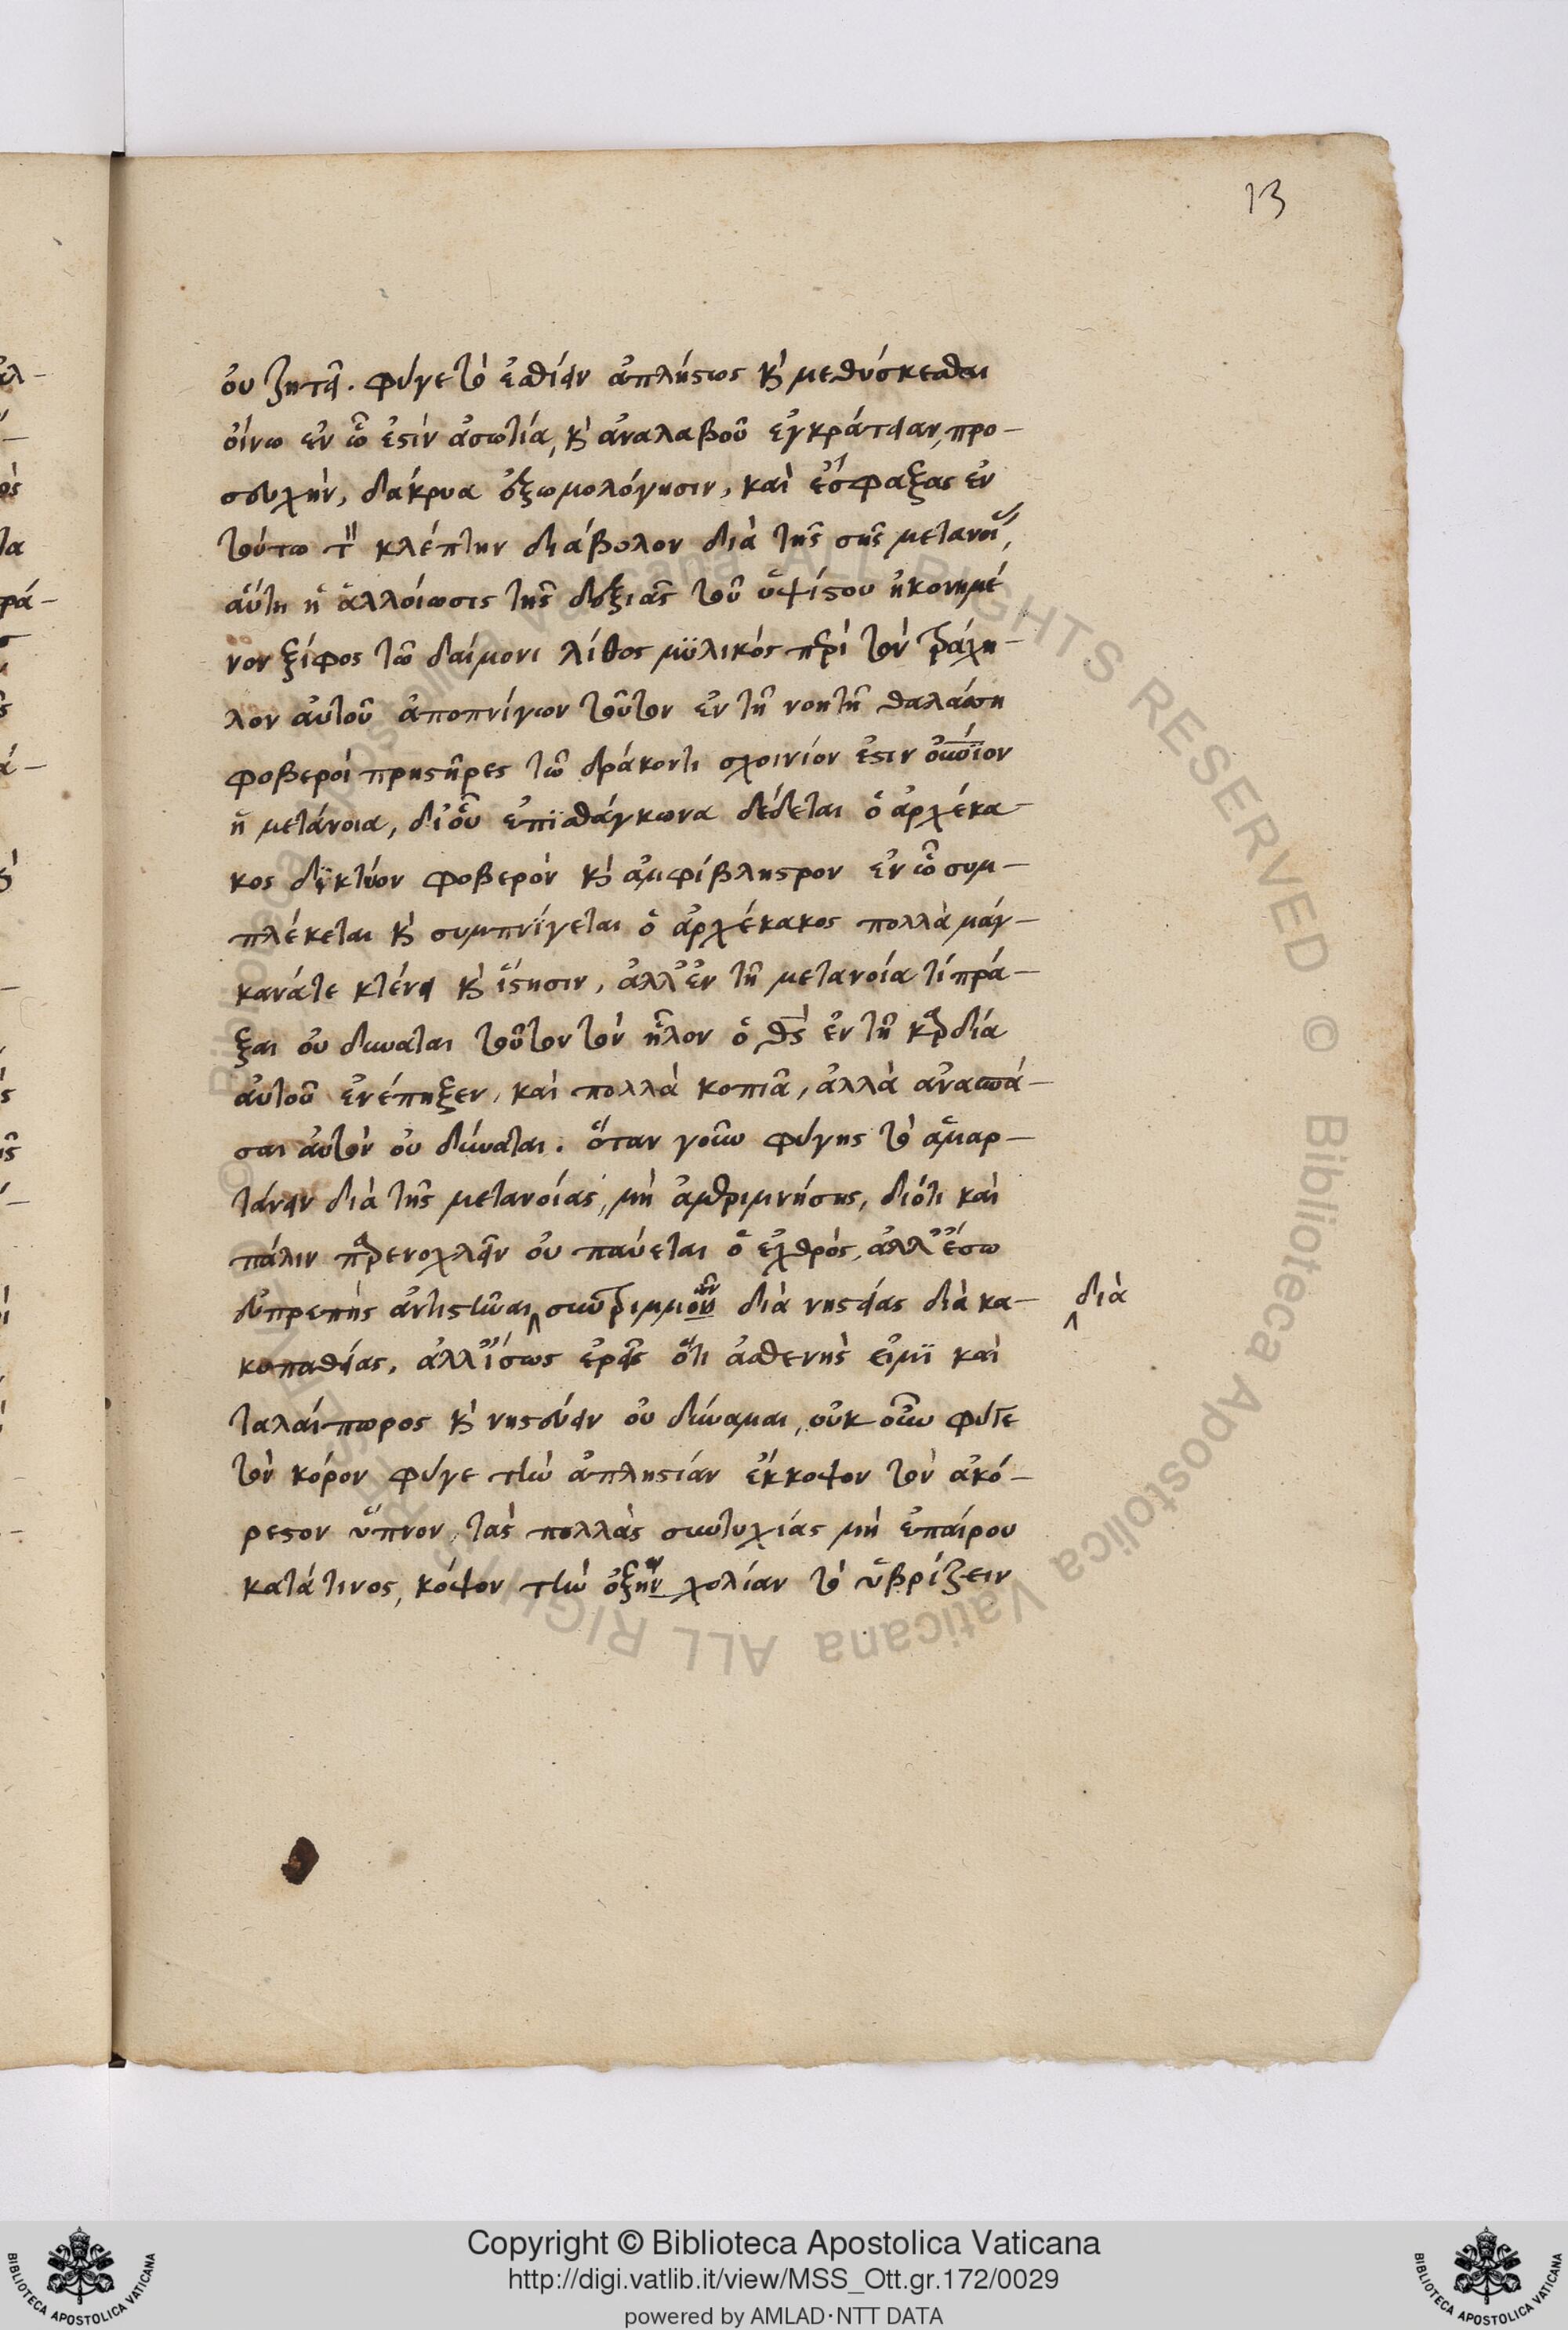 13
οὐ ζητεῖ. φύγε τὸ ἐσθίειν ἀπλήστως κὶ μεθύσκεσθαι
οἴνω ἐν ὧ ἐστὶν ἀσωτία, κὶ ἀναλαβοῦ ἐγκράτειαν, προ-
σευχὴν, δάκρυα ἐξωμολόγησιν, καὶ ἔσφαξας ἐν
τούτω τὸν κλέπτην διάβολον διὰ τῆς σῆς μετανοίας,
αὕτη ἡ ἀλλοίωσις τῆς δεξιᾶς τοῦ ὑψίστου ἠκονημέ
νον ξίφος τῶ δαίμονι λίθος μϋλικός περὶ τὸν τράχη-
λον αὐτοῦ ἀποπνίγων τοῦτον ἐν τῇ νοητῇ θαλάσση
φοβεροὶ πρηστῆρες τῶ δράκοντι σχοινίον ἐστιν ὁποῖον
ἡ μετάνοια, δι' οὗ ἐπϊσθάγκωνα δέδεται ὁ ἀρχέκα-
κος δίκτυον φοβερὸν κὶ ἀμφίβληστρον ἐν ὧ συμ-
πλέκεται κὶ συμπνίγεται ὁ ἀρχέκακος πολλὰ μάγ-
κανάτε κτένει κὶ ἵστησιν, ἀλλ' ἐν τῇ μετανοία τί πρά-
ξαι οὐ δύναται τοῦτον τὸν ἧλον ὁ θς ἐν τῇ καρδία
αὐτοῦ ἐνέπηξεν, καὶ πολλὰ κοπιᾶ, ἀλλὰ ἀνασπά-
σαι αὐτὸν οὐ δύναται. ὅταν γοῦν φύγης τὸ ἁμαρ-
τάνειν διὰ τῆς μετανοίας, μὴ ἀμεριμνήσης, διότι καὶ
πάλιν παρενοχλεῖν οὐ παύεται ὁ ἐχθρός, ἀλλ' ἔσω
εὐπρεπὴς ἀντιστῶαι ‸ συντριμμῶν διὰ νηστείας διὰ κα- ‸ διὰ
κοπαθείας, ἀλλ' ἴσως ἐρεῖς ὅτι ἀσθενὴς εἰμϊ καὶ
ταλαίπωρος κὶ νηστεύειν οὐ δύναμαι, οὐκ οὖν φύγε
τὸν κόρον φύγε τὴν ἀπληστίαν ἔκκοψον τὸν ἀκό-
ρεστον ὕπνον, τὰς πολλὰς συντυχίας μὴ ἐπαίρου
κατά τινος, κόψον τὴν ὀξὴν χολίαν τὸ ὑβρίζειν
Copyright © Biblioteca Apostolica Vaticana
http://digi.vatlib.it/view/MSS_Ott.gr.172/0029
powered by AMLAD·NTT DATA